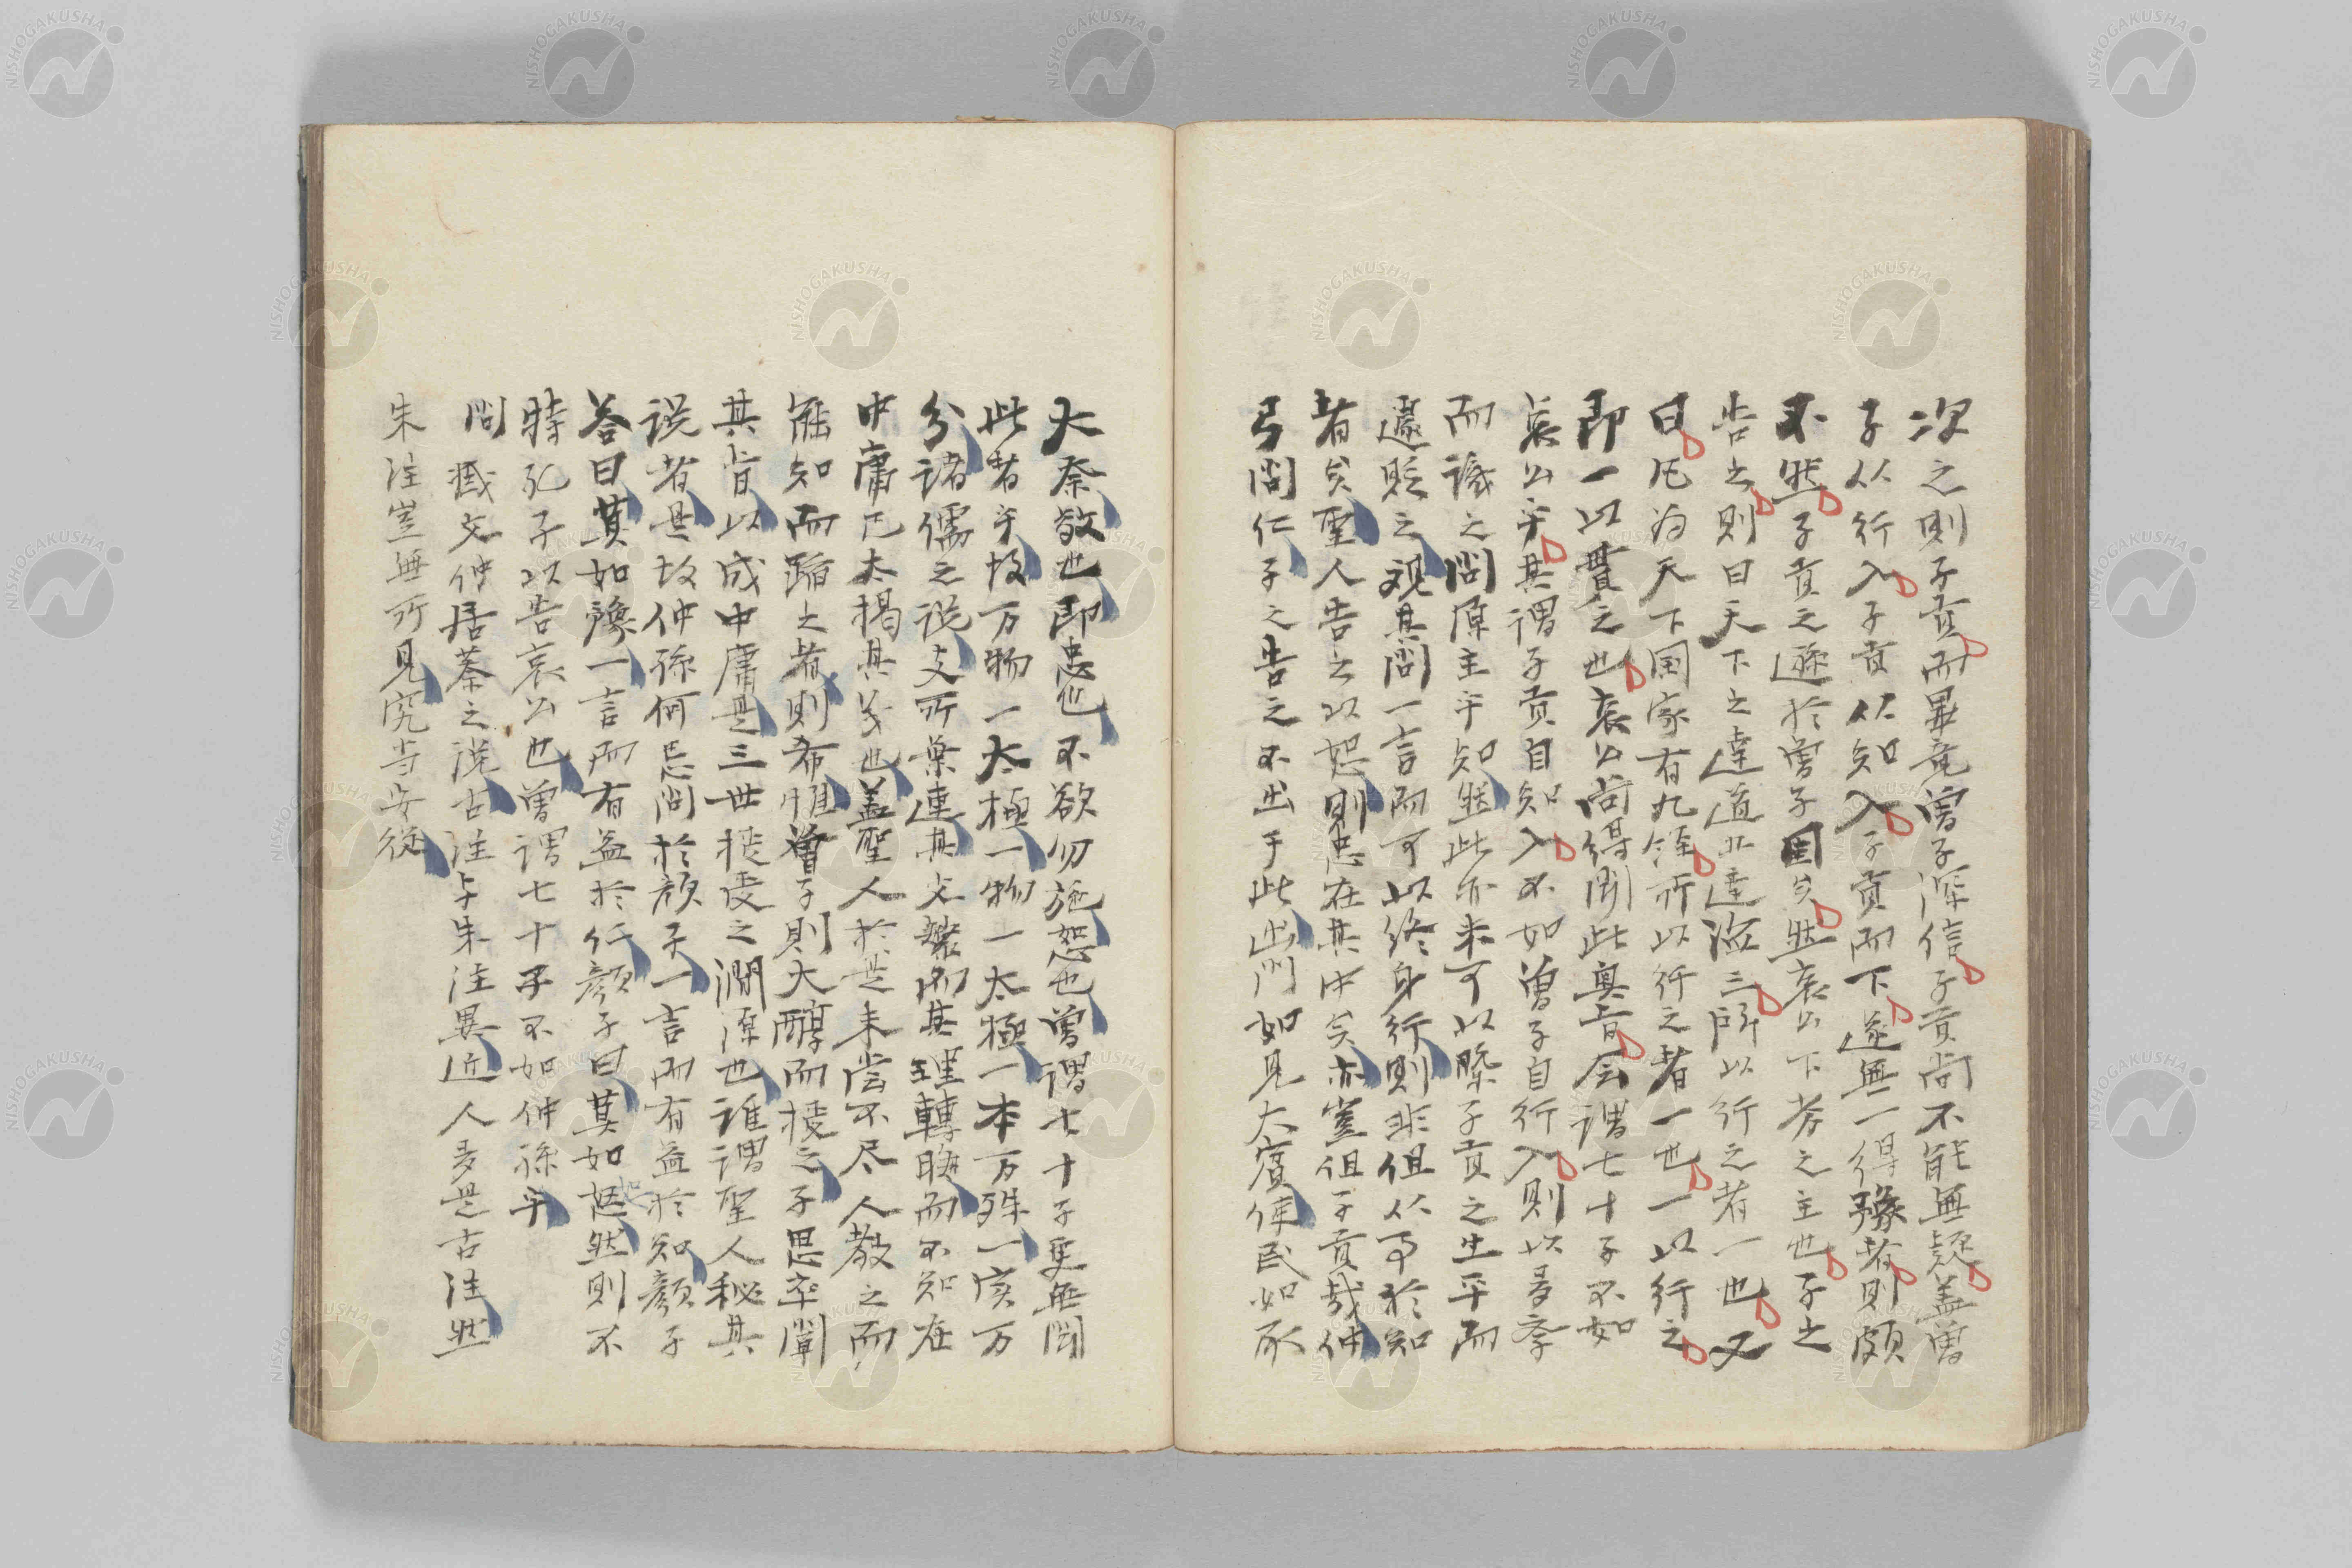 次之則子貢而畢竟曽子深信子貢尚不能無疑蓋曽
子从行入子貢从知入子貢而下遂無一得豫者則頗
不然子貢之遜於曽子固矣然哀公下芳之主也子之
告之則曰天下之達道五達道三所以行之者一也又
曰凡為天下国家有九経所以行之者一也一以行之
即一以貫之也哀公尚得聞此奥旨会謂七十子不如
哀公乎其謂子貢自知入不如曽子自行入則以多学
而識之問原主乎知然此亦未可以槩子貢之生平而
遽貶之观其問一言而可以終身行則非但从事於知
者矣聖人告之以恕則忠在其中矣亦豈但子貢哉仲
弓問仁子之告之不出乎此出門如見大賓使民如承
大祭敬也即忠也不欲勿施恕也曽謂七十子更無聞
此者乎故万物一太極一物一太極一本万殊一実万
分諸儒之説支所葉連其文繁而其理轉晦而不知在
中庸已太揭其義也蓋聖人於是未尝不尽人教之而
能知而蹈之者則希惟曽子則大醇而授之子思卒闡
其旨以成中庸是三世授受之淵源也誰謂聖人秘其
説者是故仲孫何忌問於顔子一言而有益於知顔子
答曰莫如豫一言而有益於仁顔子曰莫如恕然則不
特孔子以告哀公也曽謂七十子不如仲孫乎
問臧文仲居蔡之説古注与朱注異近人多是古注然
朱注豈無所見究当安從
NISHOGAKUSHA